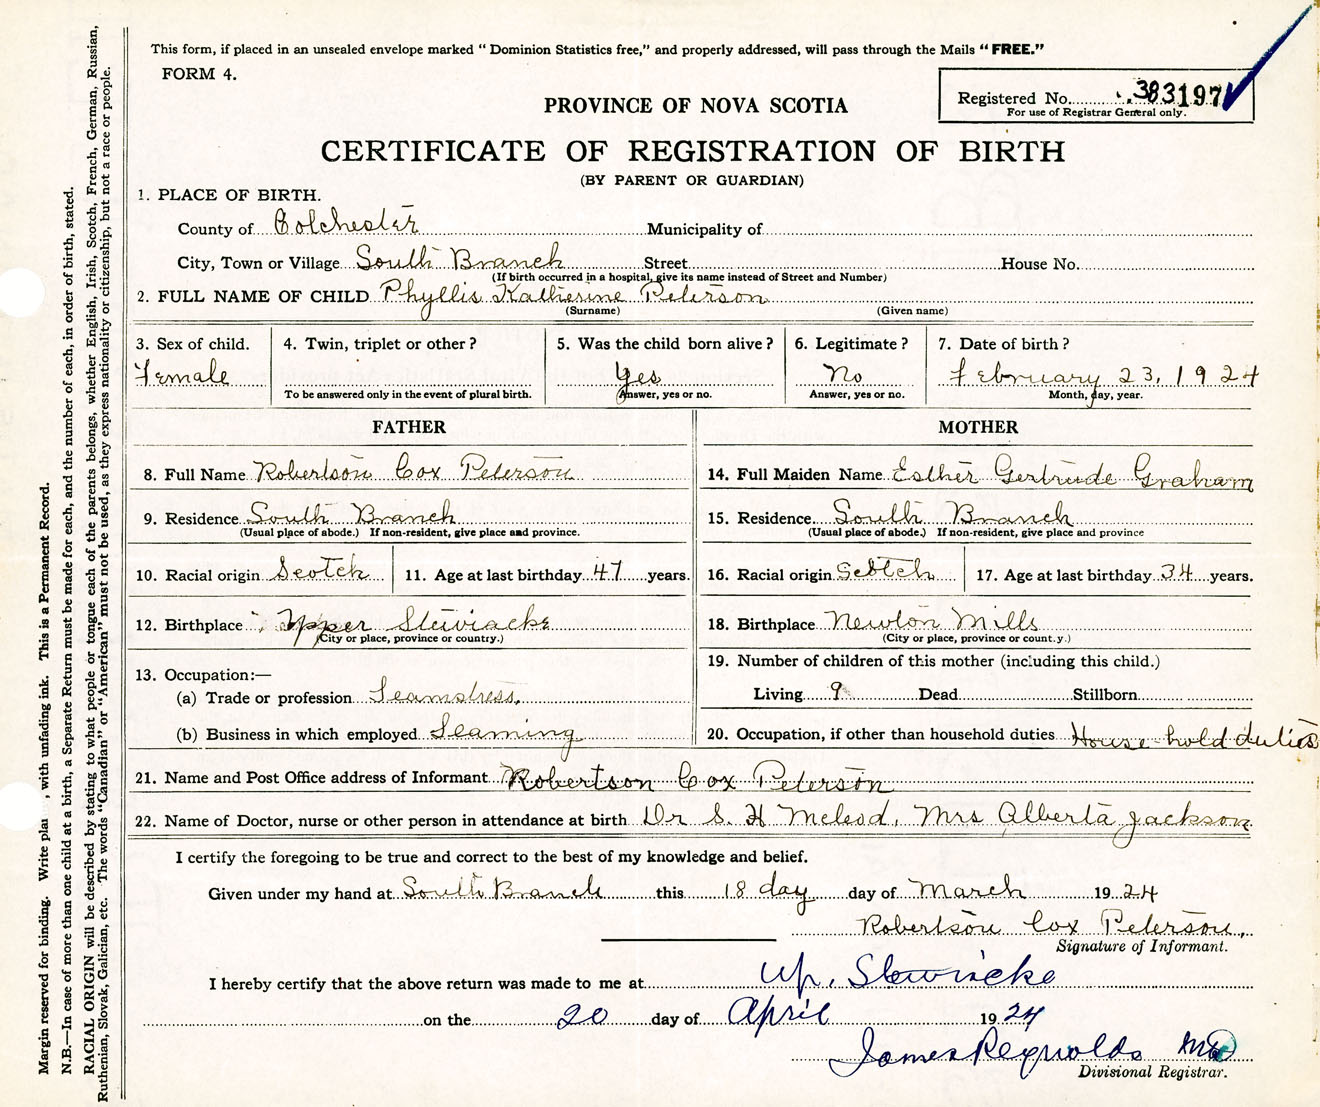 This form, if placed in an unsealed envelope marked “ Dominion Statistics free,” and properly addressed, will pass through the Mails “ FREE.”
FORM 4.
Registered No. 383197
For use of Registrar General only.
PROVINCE OF NOVA SCOTIA
CERTIFICATE OF REGISTRATION OF BIRTH
(BY PARENT OR GUARDIAN)
1. PLACE OF BIRTH.
County of Colchester Municipality of
City, Town or Village South Branch Street House No.
(If birth occurred in a hospital, give its name instead of Street and Number)
2. FULL NAME OF CHILD Phyllis Katherine Peterson
(Surname) (Given name)
3. Sex of child. 4. Twin, triplet or other ? 5. Was the child born alive ? 6. Legitimate ? 7. Date of birth ?
Female Yes No February 23, 1924
To be answered only in the event of plural birth. Answer, yes or no. Answer, yes or no. Month, day, year.
FATHER MOTHER
8. Full Name Robertson Cox Peterson 14. Full Maiden Name Esther Gertrude Graham
9. Residence South Branch 15. Residence South Branch
(Usual place of abode.) If non-resident, give place and province. (Usual place of abode.) If non-resident, give place and province
10. Racial origin Scotch 11. Age at last birthday 47 years. 16. Racial origin Scotch 17. Age at last birthday 34 years.
12. Birthplace Upper Stewiacke 18. Birthplace Newton Mills
(City or place, province or country.) (City or place, province or count.y.)
13. Occupation:— 19. Number of children of this mother (including this child.)
(a) Trade or profession Seamstress, Living 9 Dead Stillborn
(b) Business in which employed Seaming 20. Occupation, if other than household duties House hold duties
21. Name and Post Office address of Informant Robertson Cox Peterson
22. Name of Doctor, nurse or other person in attendance at birth Dr S. H Mcleod, Mrs Alberta Jackson
I certify the foregoing to be true and correct to the best of my knowledge and belief.
Given under my hand at South Branch this 18 day day of March 1924
Robertson Cox Peterson,
Signature of Informant.
I hereby certify that the above return was made to me at Up. Stewiacke
on the 20 day of April 1924
James Reynolds MD
Divisional Registrar.
Margin reserved for binding. Write , with unfading ink. This is a Permanent Record.
N.B.—In case of more than one child at a birth, a Separate Return must be made for each, and the number of each, in order of birth, stated.
RACIAL ORIGIN will be described by stating to what people or tongue each of the parents belongs, whether English, Irish, Scotch, French, German, Russian,
Ruthenian, Slovak, Galician, etc. The words “Canadian” or “American” must not be used, as they express nationality or citizenship, but not a race or people.